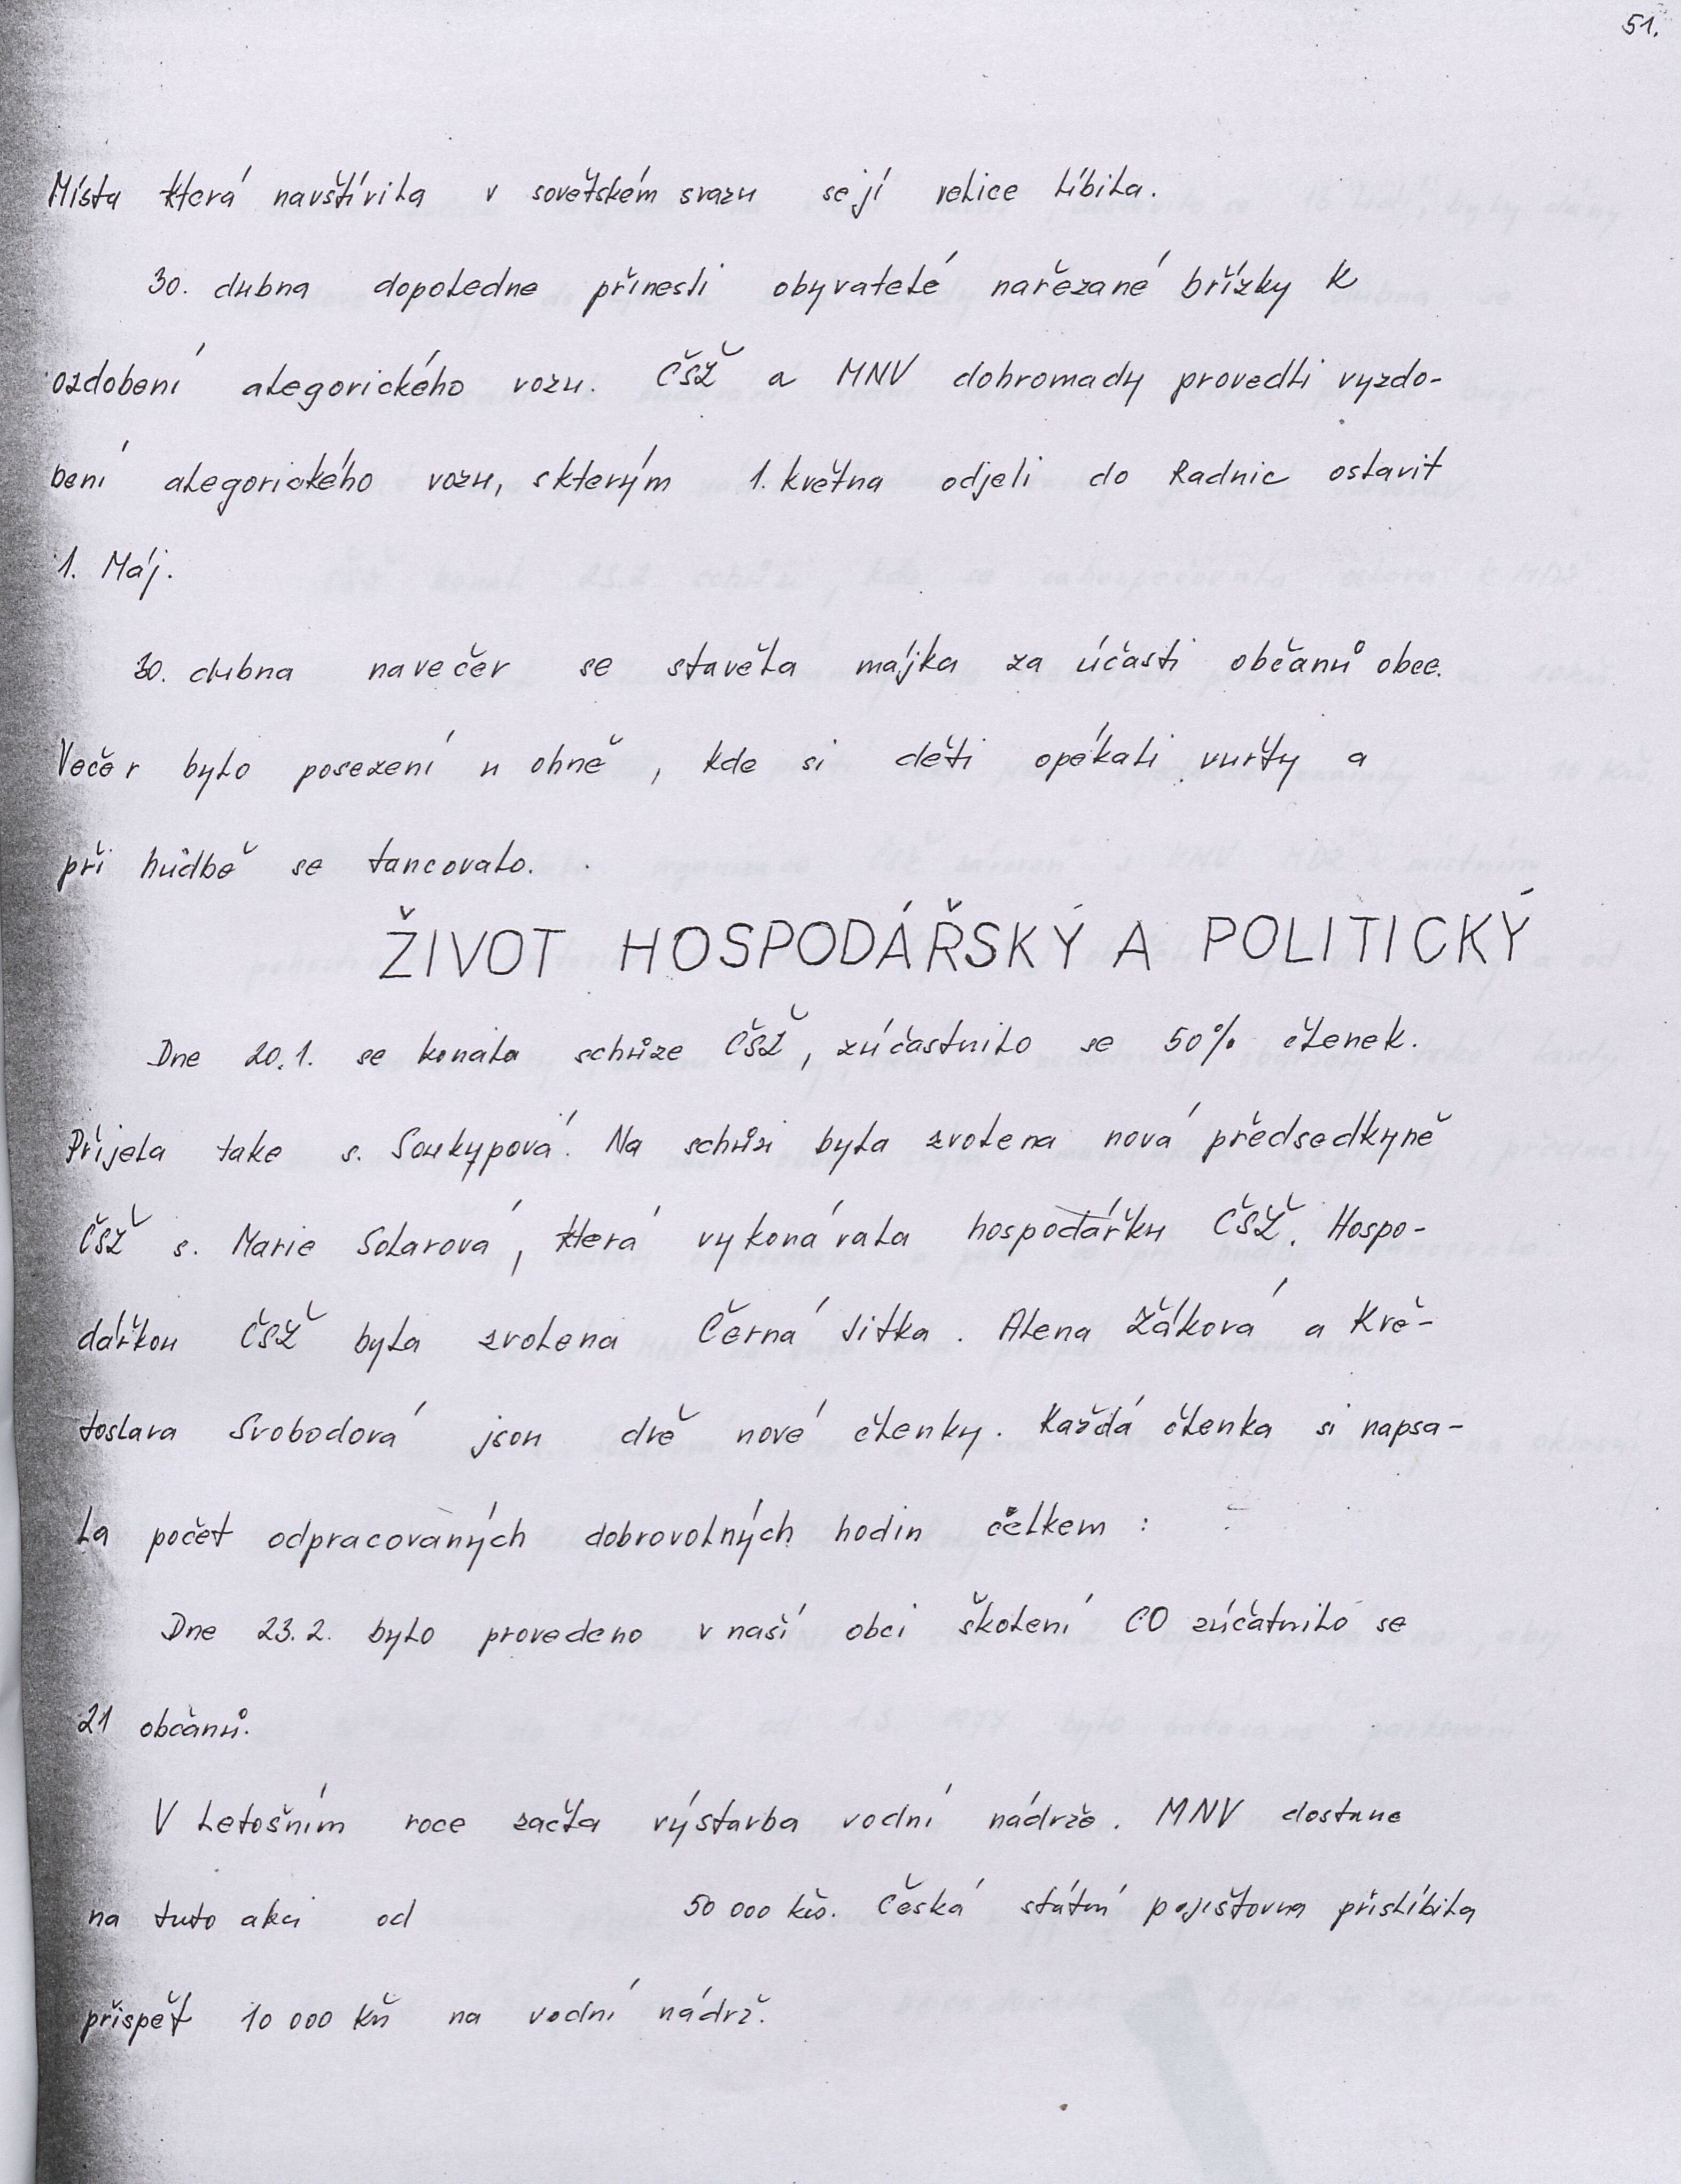 51.
Místa která navštívila v sovětském svazu se jí velice líbila.
30. dubna dopoledne přinesli obyvatelé nařezané břízky k
ozdobení alegorického vozu. ČSŽ a MNV dohromady provedli vyzdo-
bení alegorického vozu, s kterým 1. května odjeli do Radnic oslavit
1. Máj.
30. dubna navečer se stavěla májka za účasti občanů obce.
Večer bylo posezení u ohně, kde si děti opékali vuřty a
při hudbě se tancovalo.
ŽIVOT HOSPODÁŘSKÝ A POLITICKÝ
Dne 20.1. se konala schůze ČSŽ, zúčastnilo se 50% členek.
Přijela take s. Soukupová. Na schůzi byla zvolena nová předsedkyně
ČSŽ s. Marie Solarová, která vykonávala hospodářku ČSŽ. Hospo-
dářkou ČSŽ byla zvolena Černá Jitka. Alena Žáková a Kvě-
toslava Svobodová jsou dvě nové členky. Každá členka si napsa-
la počet odpracovaných dobrovolných hodin celkem :
Dne 23.2. bylo provedeno v naší obci školení CO zúčatnilo se
21 občanů.
V letošním roce začla výstavba vodní nádrže. MNV dostane
na tuto akci od 50 000 kčs. Česká státní pojišťovna přislíbila
přispět 10 000 na vodní nádrž.